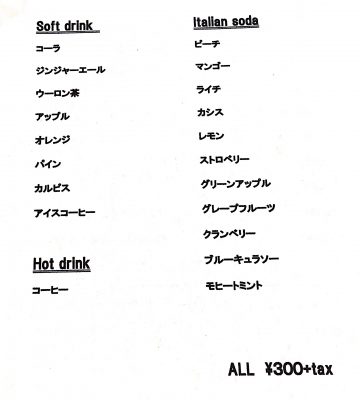 Soft drink
コーラ
ジンジャーエール
ウーロン茶
アップル
オレンジ
パイン
カルピス
アイスコーヒー
Hot drink
コーヒー
Italian soda
ピーチ
マンゴー
ライチ
カシス
レモン
ストロベリー
グリーンアップル
グレープフルーツ
クランベリー
ブルーキュラソー
モヒートミント
ALL ¥300+tax